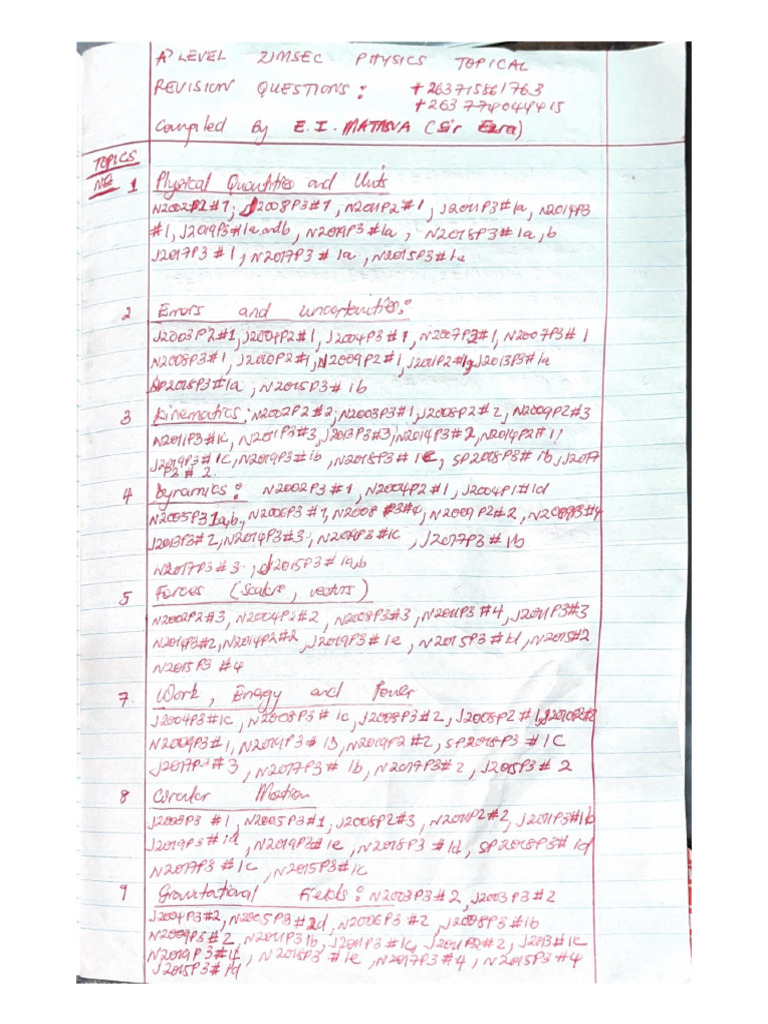 A' LEVEL ZIMSEC PHYSICS TOPICAL
REVISION QUESTIONS: +263715861763
+263774044415
Compiled By E. I. MATASVA (Sir Ezra)
TOPICS
NO 1 Physical Quantities and Units
N2002P2#7; J2008P3#7, N2011P2#1, J2011P3#1a, N2014P3
#1, J2019P3#1a andb, N2019P3#1a, N2018P3#1a,b
J2017P3#1, N2017P3#1a, N2015P3#1a
2 Errors and Uncertainities:
J2003P2#1, J2004P2#1, J2004P3#1, N2007P2#1, N2007P3#1
N2008P3#1, J2010P2#1, N2009P2#1, J2011P2#1, J2013P3#1a
SP2018P3#1a, N2015P3#1b
3 Kinematics: N2002P2#2, N2003P3#1, J2008P2#2, N2009P2#3
N2011P3#1c, N2011P3#3, J2013P3#3, N2014P3#2, N2014P2#1,
J2019P3#1c, N2019P3#1b, N2018P3#1c, SP2018P3#1b, J2017
P3#2.
4 Dynamics: N2002P3#1, N2004P2#1, J2004P1#1d
N2005P31a,b, N2006P3#1, N2008P3#4, N2009P2#2, N2009P3#4
J2013P3#2, N2014P3#3, N2019P3#1c, J2017P3#1b
N2017P3#3, J2015P3#1a,b
5 Forces (scalars, vectors)
N2002P2#3, N2004P2#2, N2008P3#3, N2011P3#4, J2011P3#3
N2014P3#2, N2014P2#2, J2019P3#1e, N2015P3#1d, N2015#2
N2015P3#4
7 Work, Energy and Power
J2004P3#1c, N2003P3#1c, J2008P3#2, J2008P2#1, J2010P2#2
N2009P3#1, N2019P3#1g, N2019P2#2, SP2018P3#1C
J2017P3#3, N2017P3#1b, N2017P3#2, J2015P3#2
8 Circular Motion
J2003P3#1, N2005P3#1, J2008P2#3, N2011P2#2, J2011P3#1b
J2019P3#1d, N2019P3#1e, N2018P3#1d, SP2018P3#1d
N2017P3#1c, N2015P3#1c
9 Gravitational Fields: N2003P3#2, J2003P3#2
J2004P3#2, N2005P3#2d, N2006P3#2, J2008P3#1b
N2009P3#2, N2011P31b, J2011P3#1c, J2011P2#2, J2013#1c
N2019P3#1f, N2018P3#1e, N2017P3#4, N2015P3#4
J2015P3#1d